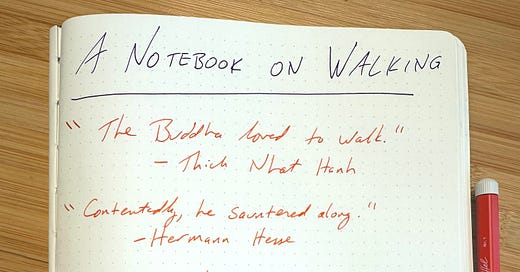 A NOTEBOOK ON WALKING
"The Buddha loved to walk."
- Thich Nhat Hanh
"Contentedly, he sauntered along."
- Hermann Hesse